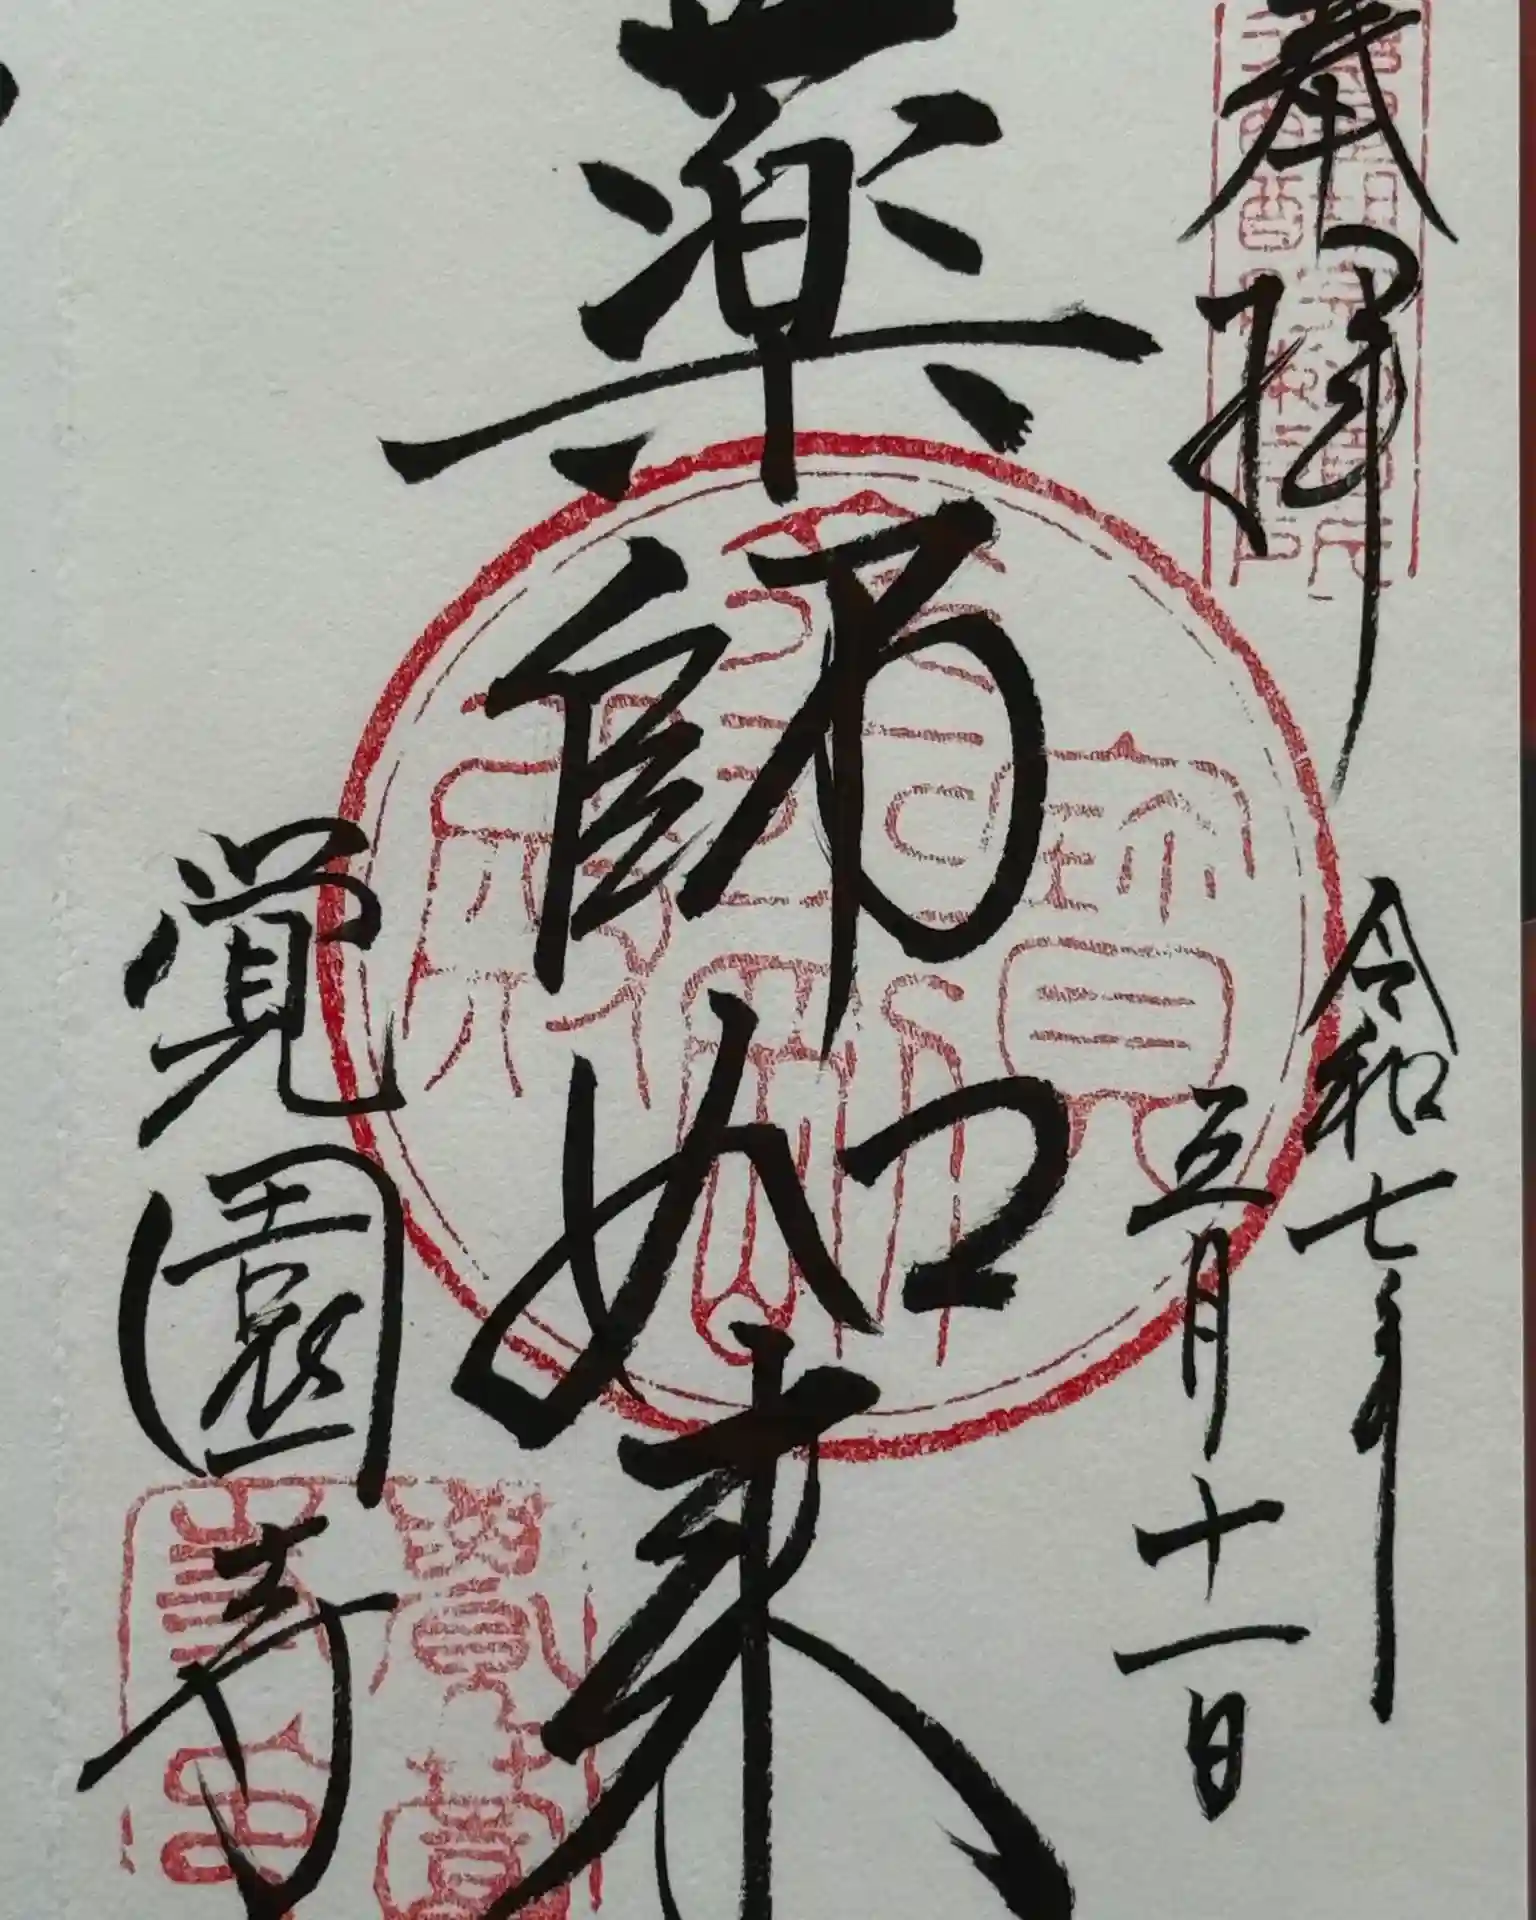 奉拝
令和七年
五月十一日
薬師如来
覚園寺